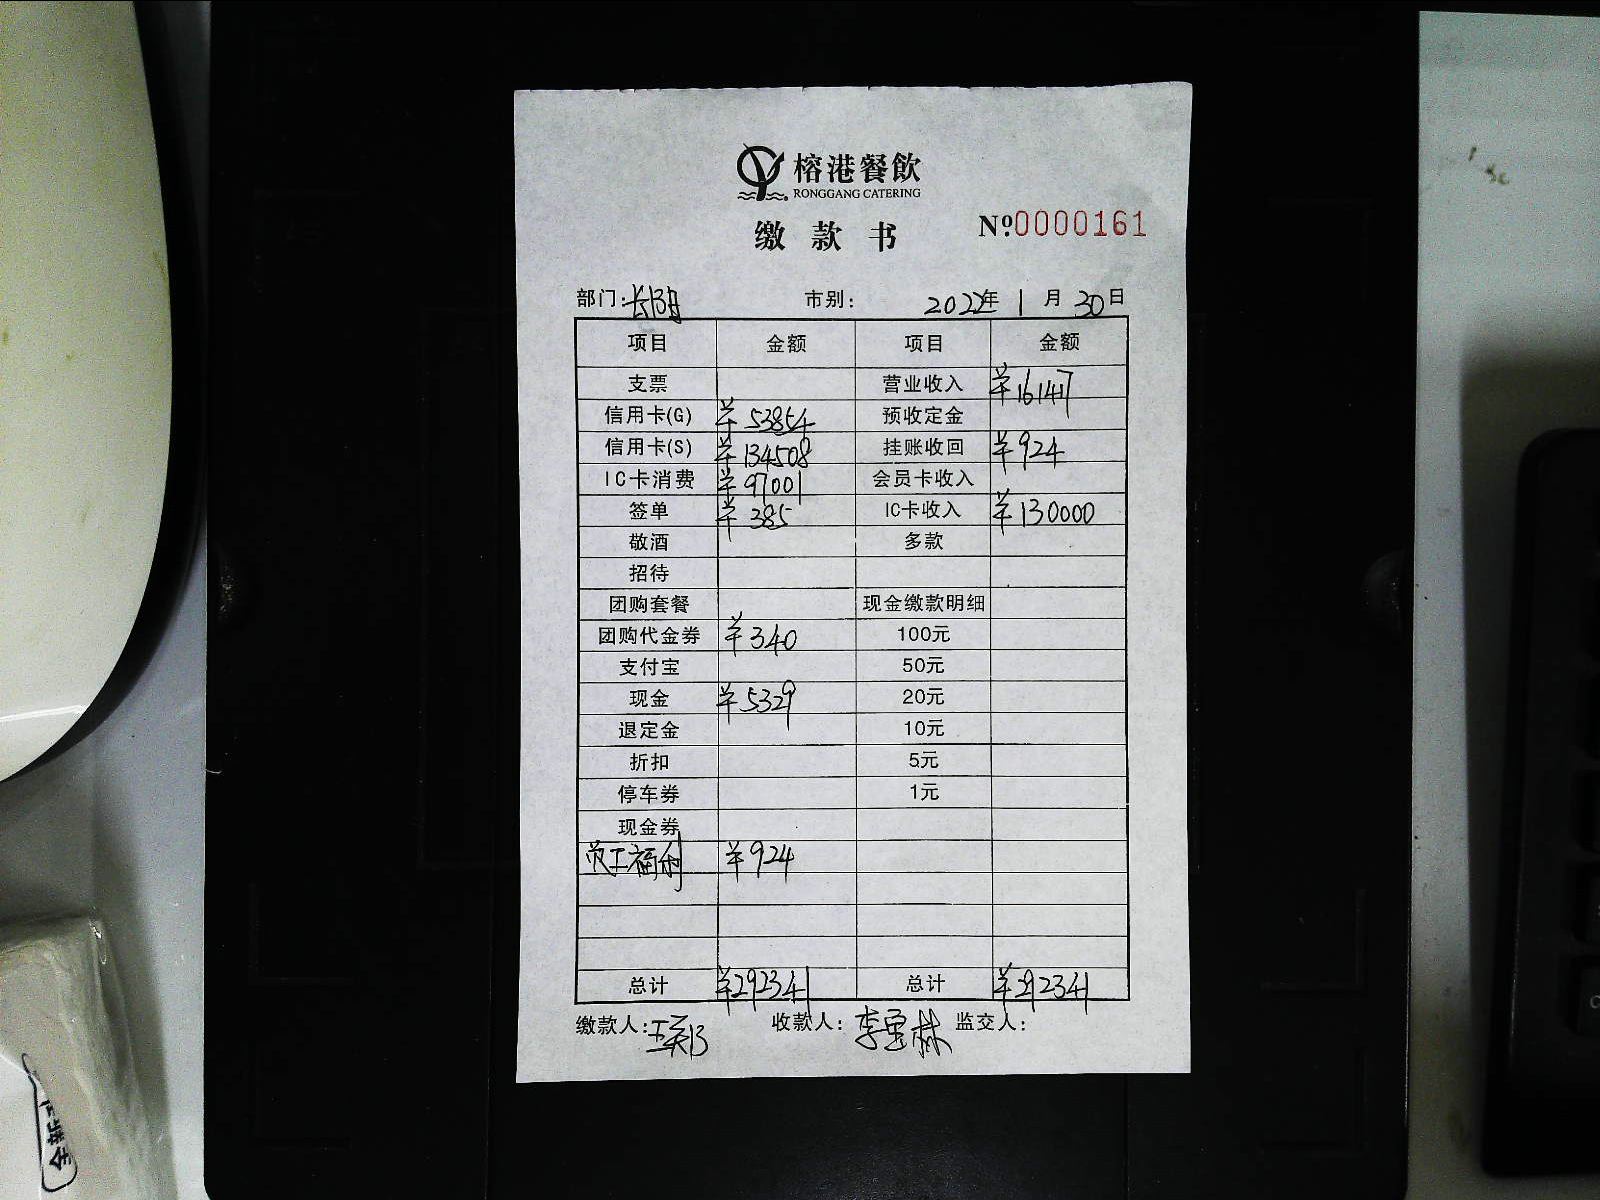 榕港餐飲
RONGGANG CATERING
缴款书
№0000161
部门:长阳 市别: 2022年 1 月 30日
项目 金额 项目 金额
支票 营业收入 ¥161417
信用卡(G) ¥53854 预收定金
信用卡(S) ¥134508 挂账收回 ¥924
IC卡消费 ¥97001 会员卡收入
签单 ¥385 IC卡收入 ¥130000
敬酒 多款
招待
团购套餐 现金缴款明细
团购代金券 ¥340 100元
支付宝 50元
现金 ¥5329 20元
退定金 10元
折扣 5元
停车券 1元
现金券
员工福利 ¥924
总计 ¥292341 总计 ¥292341
缴款人: 收款人:李 林 监交人:
全新